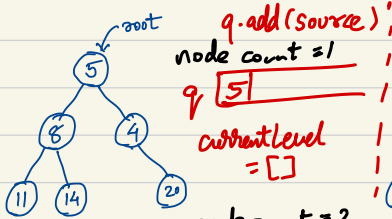 root
5
8 4
11 14 20
q.add(source)
node count = 1
q 5
currentLevel
= []